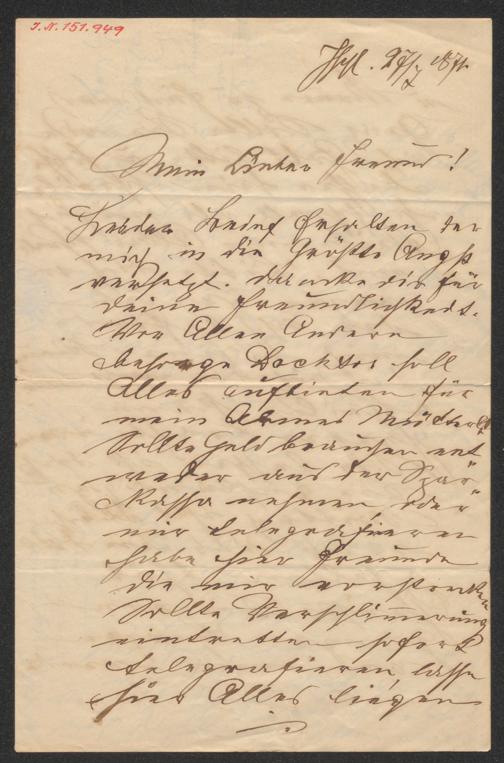 I.N. 151.949
Ischl. 27/7 1871.
Mein Lieber Freund!
Brief Erhalten der
mich in die Größte Angst
versetzt. dancke dir für
deine Freundlichkeit.
Vor Allen Andern
besorge Docktor soll
Alles aufbieten für
mein Armes Mütterl
Sollte Geld brauchen ent
weder aus der Spar
Kassa nehmen, oder
mir telegrafieren
habe hier Freunde
die mir vorstrecken
Sollte Verschlimmerung
eintretten sofort
telegrafieren, lasse
hier Alles liegen